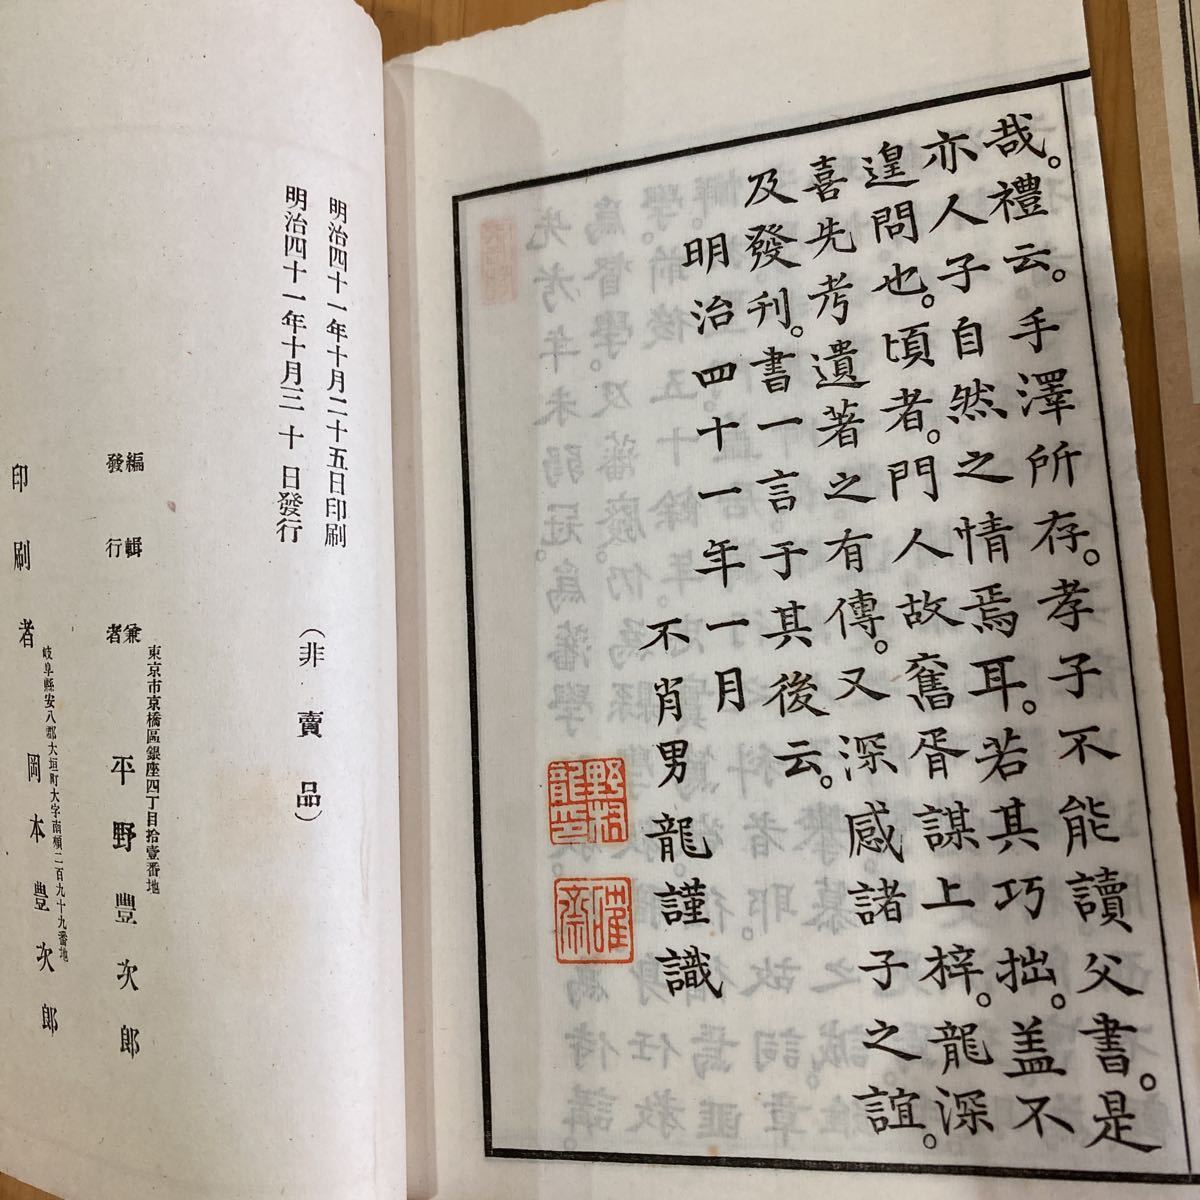 哉。禮云。手澤所存。孝子不能讀父書。是
亦人子自然之情焉耳。若其巧拙。蓋不
遑問也。頃者。門人故舊胥謀上梓。龍深
喜先考遺著之有傳。又深感諸子之誼。
及發刊。書一言于其後云。
明治四十一年一月
不肖男龍謹識
明治四十一年十月二十五日印刷
明治四十一年十月三十日發行
（非賣品）
東京市京橋區銀座四丁目拾壹番地
編輯兼
發行者
平野豐次郎
岐阜縣安八郡大垣町大字南頰二百九十九番地
印刷者
岡本豊次郎